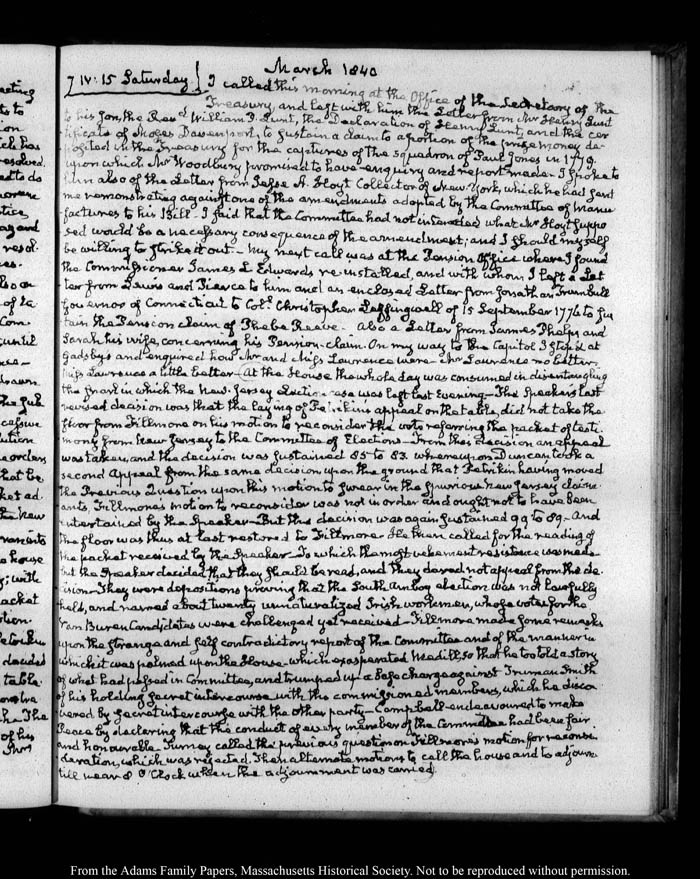 March 1840
7 IV: 15 Saturday. I called this morning at the Office of the Secretary of the
Treasury, and left with him the Letter from Mr Henry Lunt
to his Son, the Revd William P. Lunt, the Declaration of Henry Lunt, and the cer
tificate of Moses Davenport, to sustain a claim to a portion of the prize money de
posited in the Treasury for the captures of the squadron of Paul Jones in 1779.
upon which Mr Woodbury promised to have enquiry and report made. I spoke to
him also of the Letter from Jesse A. Hoyt Collector of New York, which he had sent
me remonstrating against one of the amendments adopted by the Committee of Manu
factures to his Bill. I said that the Committee had not intended what Mr Hoyt suppo
sed would be a necessary consequence of the amendment; and I should myself
be willing to strike it out. My next call was at the Pension Office where I found
the Commissioner James L. Edwards re-installed, and with whom I left a Let
ter from Lewis and Pierce to him and an enclosed Letter from Jonathan Trumbull
Governor of Connecticut to Colo. Christopher Leffingwell of 15 September 1776 to sus
tain the Pension claim of Phebe Reeve. Also a Letter from James Phelps and
Sarah his wife, concerning his Pension-claim. On my way to the Capitol I stop'd at
Gadsby's and enquired how Mr and Miss Lawrence were. Mr Lawrence no better,
Miss Lawrence a little better. At the House the whole day was consumed in disentangling
the snarl in which the New-Jersey Election case was left last evening. The Speaker's last
revised decision was that the laying of Petrikin's appeal on the table, did not take the
floor from Fillmore on his motion to reconsider the vote referring the packet of testi
mony from New Jersey to the Committee of Elections. From this decision an appeal
was taken, and the decision was sustained 85 to 83. whereupon Duncan took a
second appeal from the same decision upon the ground that Petrikin having moved
the Previous Question upon his motion to swear in the spurious New Jersey claim
ants, Fillmore's motion to reconsider was not in order and ought not to have been
entertained by the Speaker. But this decision was again sustained 99 to 89. And
the floor was thus at last restored to Fillmore. He then called for the reading of
the packet received by the Speaker. To which the most vehement resistance was made
but the Speaker decided that they should be read, and they dared not appeal from the de
cision. They were depositions proving that the South Amboy election was not lawfully
held, and named about twenty unnaturalized Irish workmen, whose votes for the
Van Buren Candidates were challenged yet received. Fillmore made some remarks
upon the strange and self contradictory report of the Committee and of the manner in
which it was palmed upon the House which exasperated Medill, so that he too told a story
of what had passed in Committee, and trumped up a false charge against Truman Smith
of his holding secret intercourse with the commissioned members, which he disco
vered by secret intercourse with the other party. Campbell endeavoured to make
Peace by declaring that the conduct of every member of the Committee had been fair
and honourable. Turney called the previous question on Fillmore's motion for reconsi
deration, which was rejected. Then alternate motions to call the house and to adjourn
till near 8 O'Clock when the adjournment was carried.
From the Adams Family Papers, Massachusetts Historical Society. Not to be reproduced without permission.